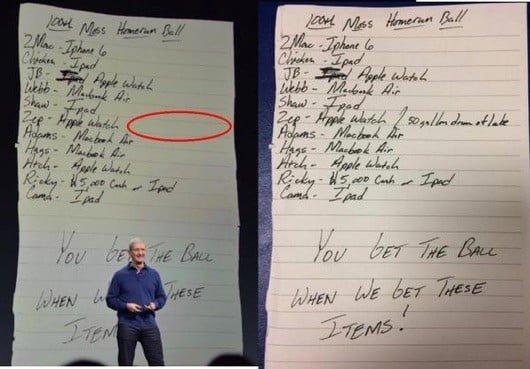 100th Moss Homerun Ball
2Mac - Iphone 6
Chicken - Ipad
JB - Apple Watch
Webb - Macbook Air
Shaw - Ipad
Zep - Apple Watch
Adams - Macbook Air
Hags - Macbook Air
Atch - Apple Watch
Ricky - $5,000 Cash or Ipad
Cama - Ipad
YOU GET THE BALL
WHEN WE THESE
ITEMS
100th Moss Homerun Ball
2Mac - Iphone 6
Chicken - Ipad
JB - Apple Watch
Webb - Macbook Air
Shaw - Ipad
Zep - Apple Watch / 50 gallon drum of lube
Adams - Macbook Air
Hags - Macbook Air
Atch - Apple Watch
Ricky - $5,000 Cash or Ipad
Cama - Ipad
YOU GET THE BALL
WHEN WE GET THESE
ITEMS!